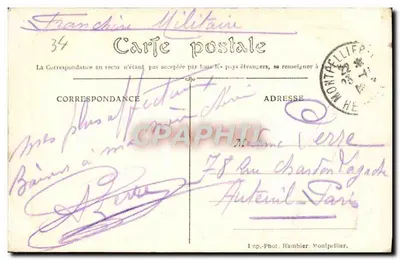 Franchise Militaire
34
Carte postale
La Correspondance au recto n'étant pas acceptée par tous les pays étrangers, se renseigner à
CORRESPONDANCE
ADRESSE
MONTPELLIER
Mes plus affectueux
Baisers à ma
Madame Serre
78 Rue Chardon Lagache
Auteuil-Paris
CPAPHIL
Imp.-Phot. Hambier, Montpellier.